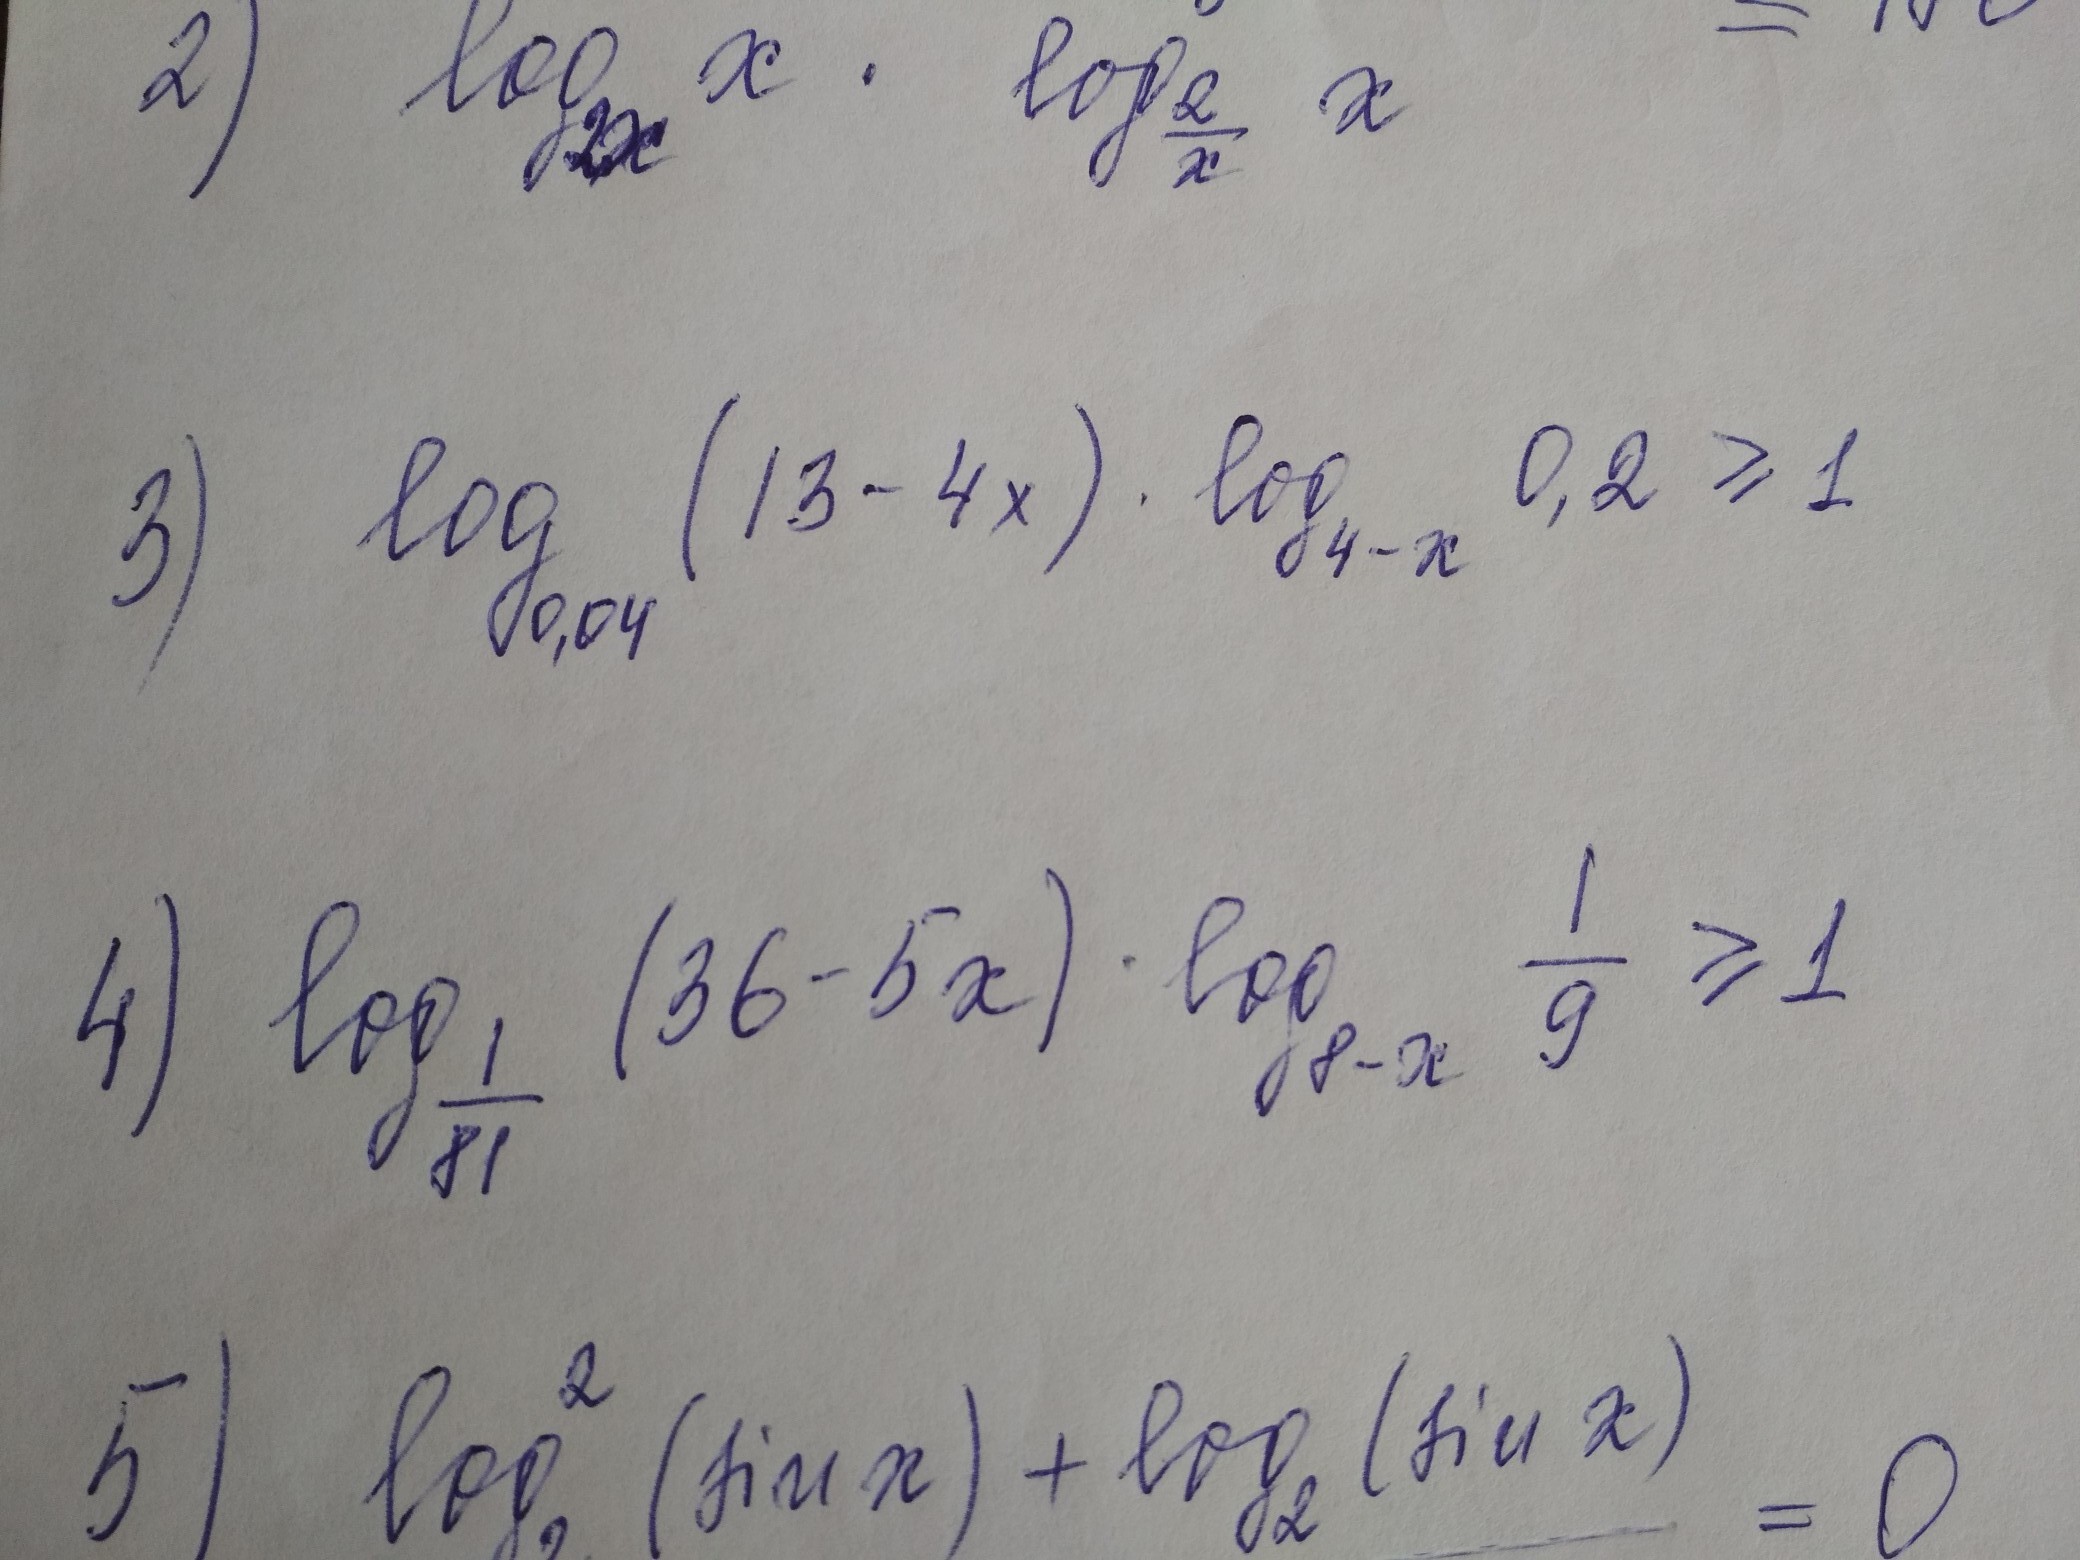 2) log_{2x} x · log_{2/x} x
3) log_{0,04} (13 - 4x) · log_{4-x} 0,2 ⩾ 1
4) log_{1/81} (36 - 5x) · log_{8-x} 1/9 ⩾ 1
5) log_2^2 (sin x) + log_2 (sin x) = 0